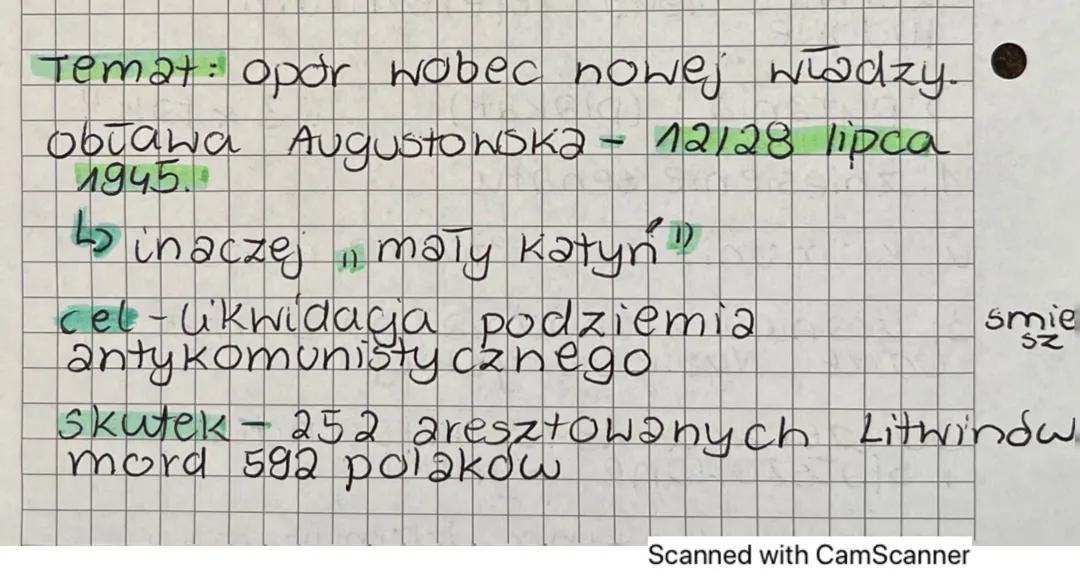 Temat: opór wobec nowej władzy.
Obława Augustowska - 12/28 lipca
1945.
↳ inaczej „mały Katyń"
cel - likwidacja podziemia
antykomunistycznego
smie
sz
skutek - 252 aresztowanych Litwinów
mord 592 polaków
Scanned with CamScanner